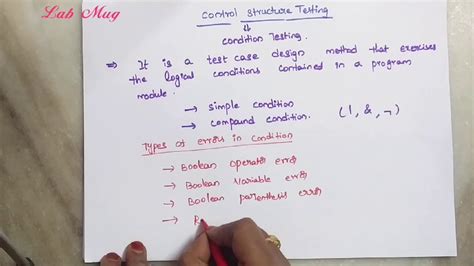 Lab Mug
Control Structure Testing
condition Testing.
⇒ It is a test case design method that exercises
the logical conditions contained in a program
module.
→ simple condition
→ compound condition. (|, &, ¬)
Types of errors in condition
→ Boolean operator error
→ Boolean variable error
→ Boolean parenthesis error
→ R